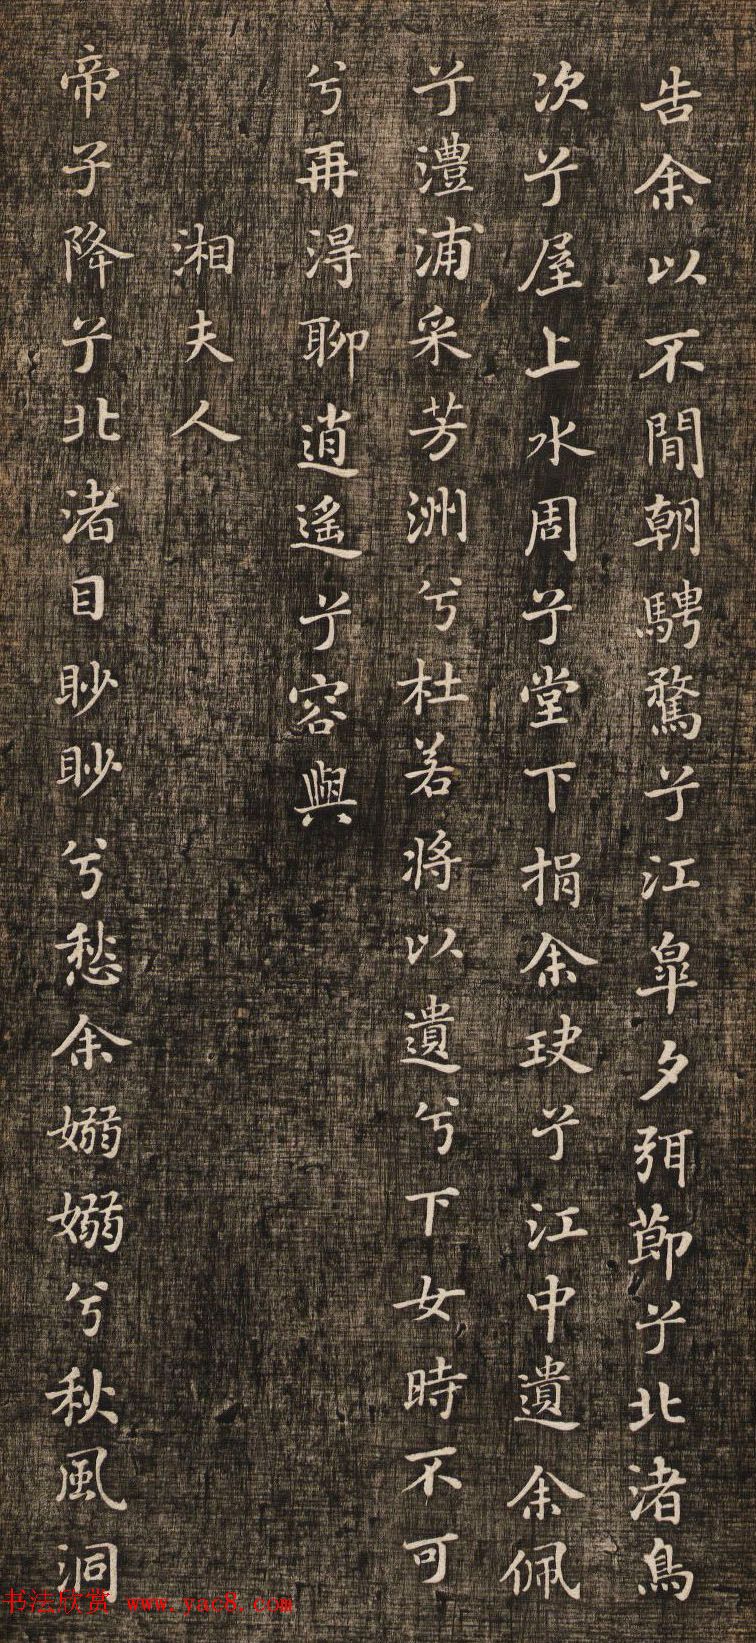 告余以不閒朝騁騖兮江皋夕弭節兮北渚鳥
次兮屋上水周兮堂下捐余玦兮江中遺余佩
兮澧浦采芳洲兮杜若將以遺兮下女時不可
兮再得聊逍遙兮容與
湘夫人
帝子降兮北渚目眇眇兮愁余嫋嫋兮秋風洞
书法欣赏 www.yac8.com